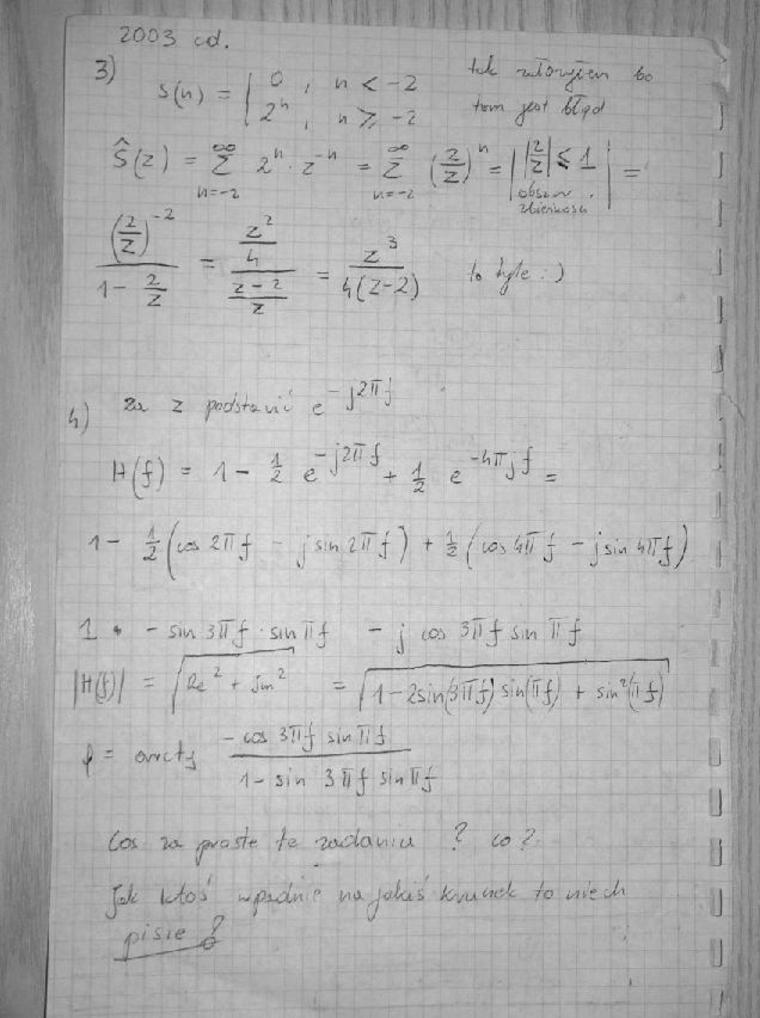 2003 cd.
3) s(n) = | 0 , n < -2
2ⁿ , n ⩾ -2
tak założyłem bo
tam jest błąd
Ŝ(z) = ∑_{n=-2}^{∞} 2ⁿ · z⁻ⁿ = ∑_{n=-2}^{∞} (2/z)ⁿ = | |2/z| ≤ 1 | =
obszar
zbieżności
(2/z)⁻² / (1 - 2/z) = (z²/4) / ((z-2)/z) = z³ / 4(z-2) to tyle :)
4) za z podstawić e^{-j2πf}
H(f) = 1 - 1/2 e^{-j2πf} + 1/2 e^{-4πjf} =
1 - 1/2 (cos 2πf - j sin 2πf) + 1/2 (cos 4πf - j sin 4πf)
1 - sin 3πf · sin πf - j cos 3πf sin πf
|H(f)| = √(Re² + Im²) = √(1 - 2sin(3πf) sin(πf) + sin²(πf))
φ = arctg (-cos 3πf sin πf) / (1 - sin 3πf sin πf)
Coś za proste te zadania ? co ?
Jak ktoś wpadnie na jakiś kruczek to niech
pisze !